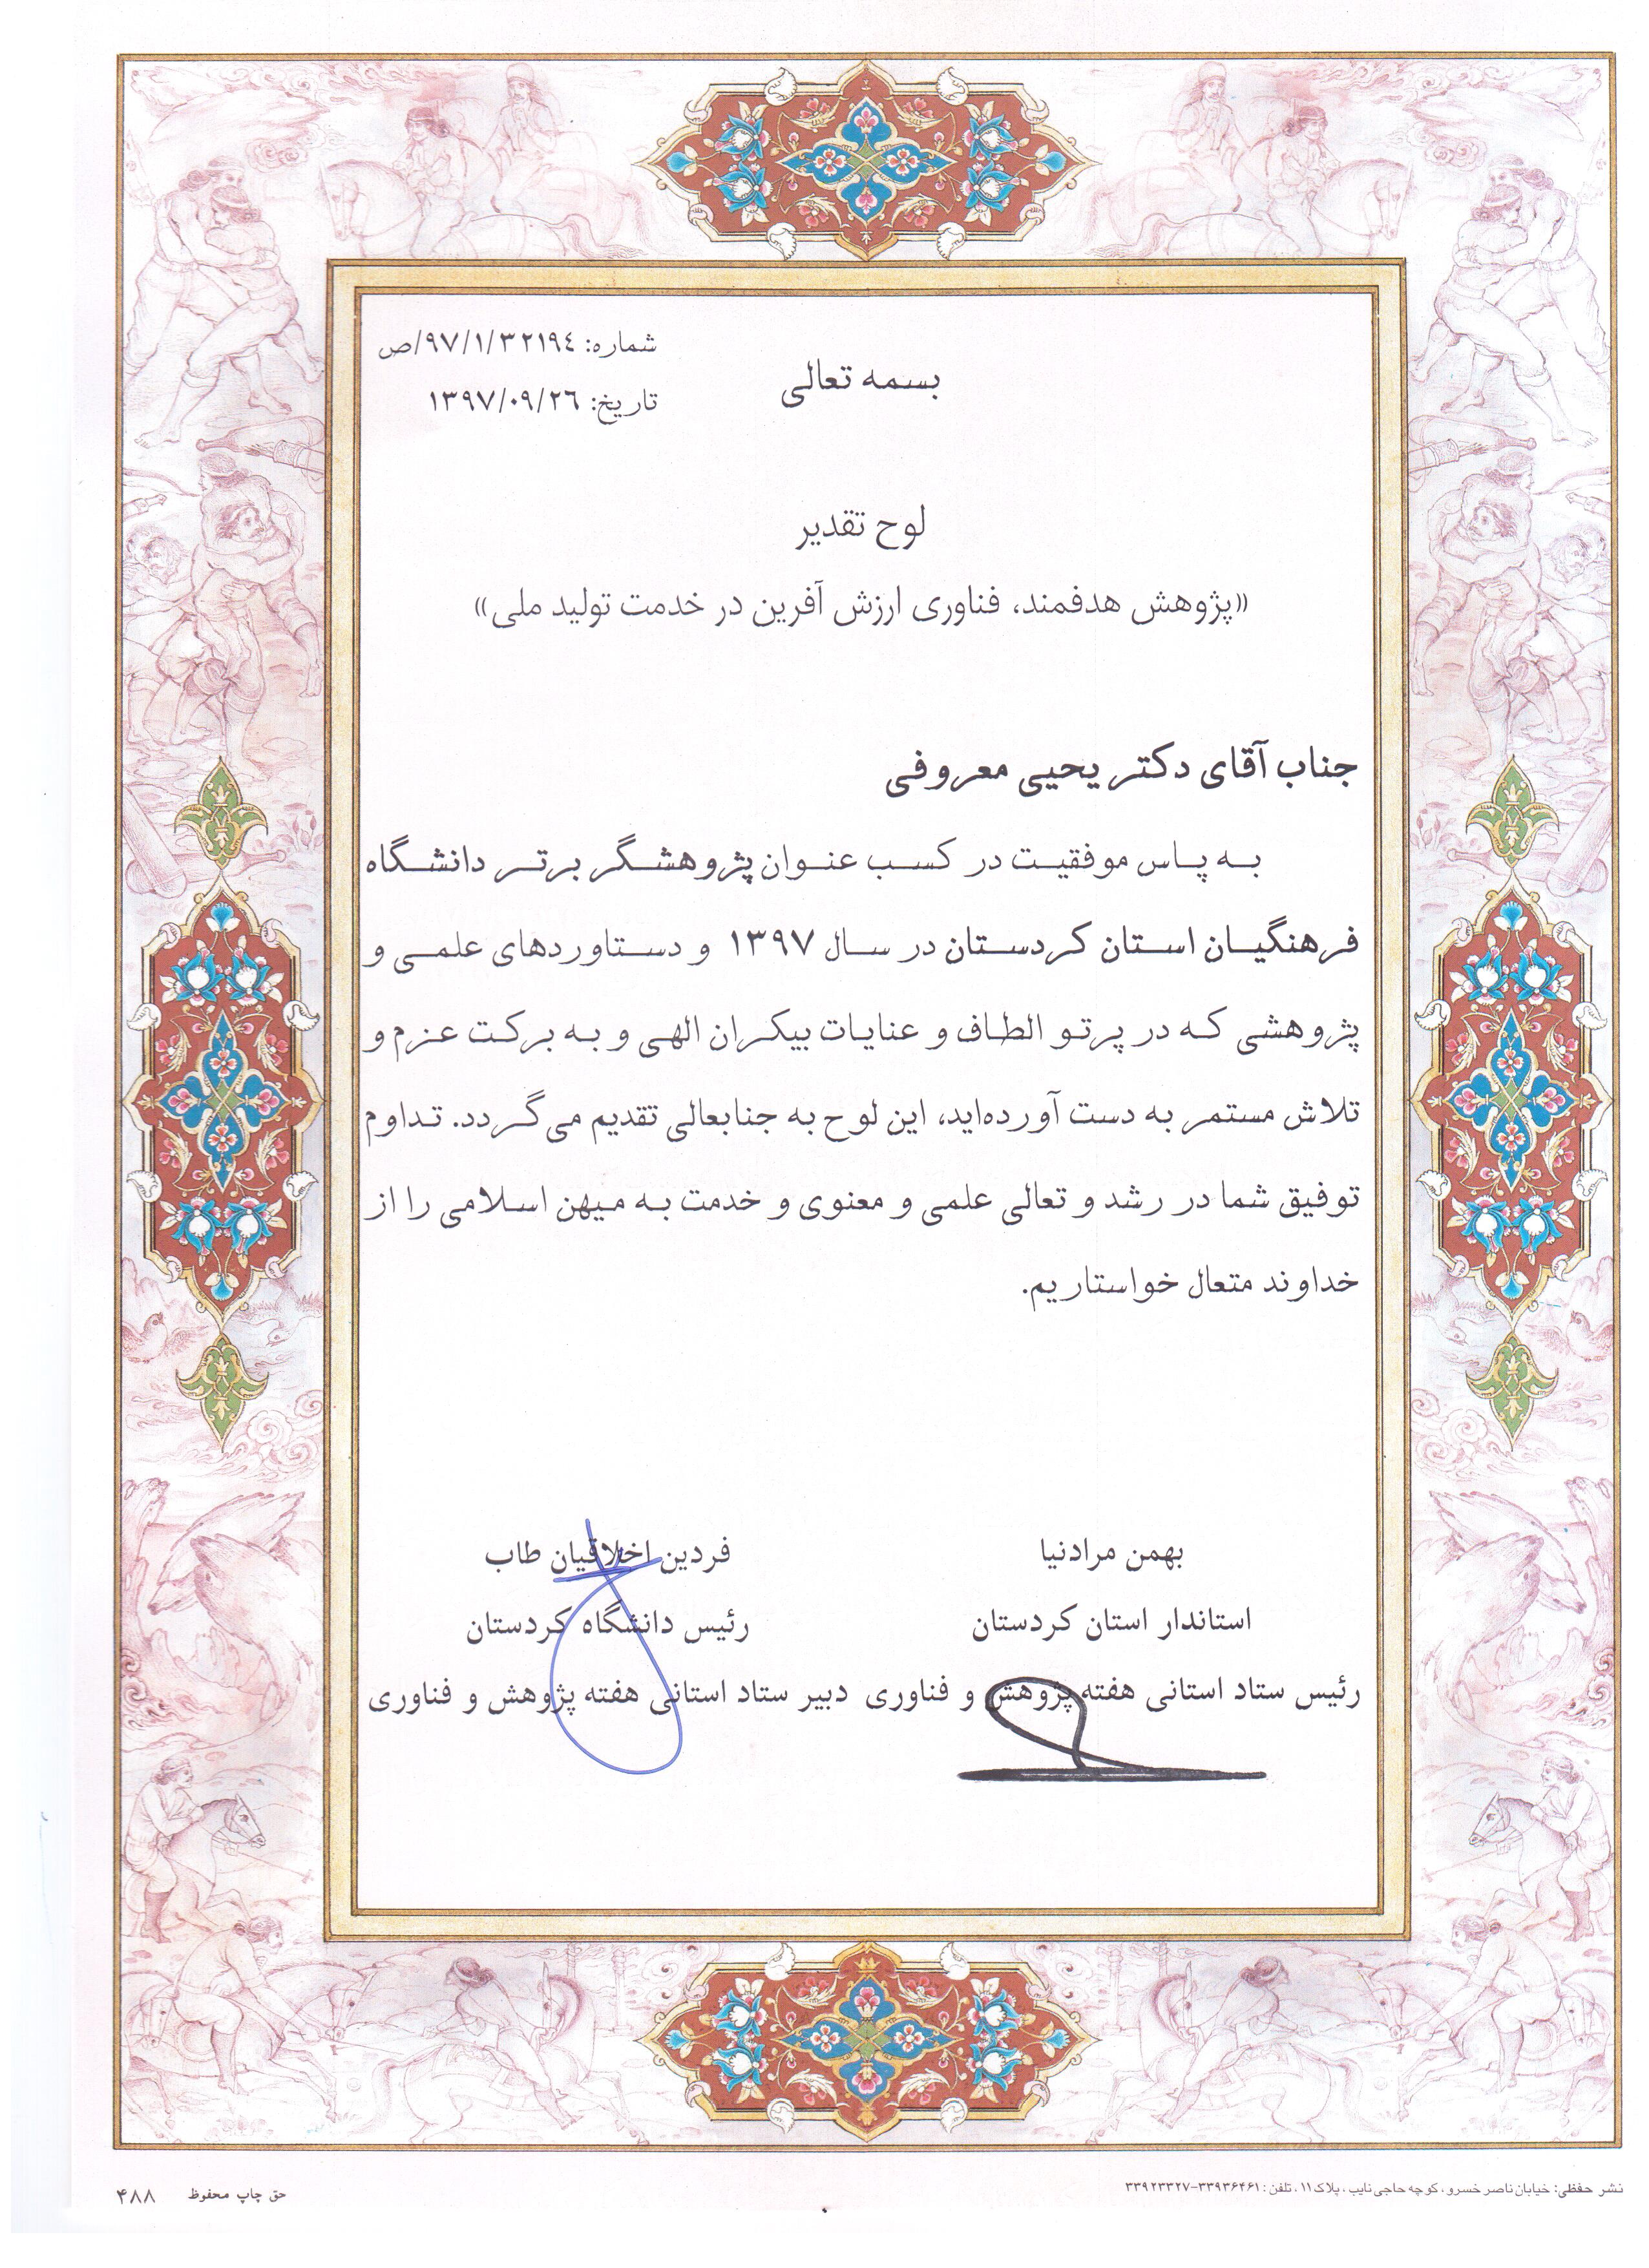 شماره: ۹۷/۱/۳۲۱۹٤/ص
بسمه تعالی
تاریخ: ۱۳۹۷/۰۹/۲٦
لوح تقدیر
«پژوهش هدفمند، فناوری ارزش آفرین در خدمت تولید ملی»
جناب آقای دکتر یحیی معروفی
به پاس موفقیت در کسب عنوان پژوهشگر برتر دانشگاه
فرهنگیان استان کردستان در سال ۱۳۹۷ و دستاوردهای علمی و
پژوهشی که در پرتو الطاف و عنایات بیکران الهی و به برکت عزم و
تلاش مستمر به دست آورده‌اید، این لوح به جنابعالی تقدیم می‌گردد. تداوم
توفیق شما در رشد و تعالی علمی و معنوی و خدمت به میهن اسلامی را از
خداوند متعال خواستاریم.
بهمن مرادنیا
استاندار استان کردستان
رئیس ستاد استانی هفته پژوهش و فناوری
فردین اخلاقیان طاب
رئیس دانشگاه کردستان
دبیر ستاد استانی هفته پژوهش و فناوری
نشر حفظی: خیابان ناصر خسرو، کوچه حاجی نایب، پلاک ۱۱، تلفن: ۳۳۹۳۶۴۶۱-۳۳۹۲۳۳۲۷
حق چاپ محفوظ ۴۸۸